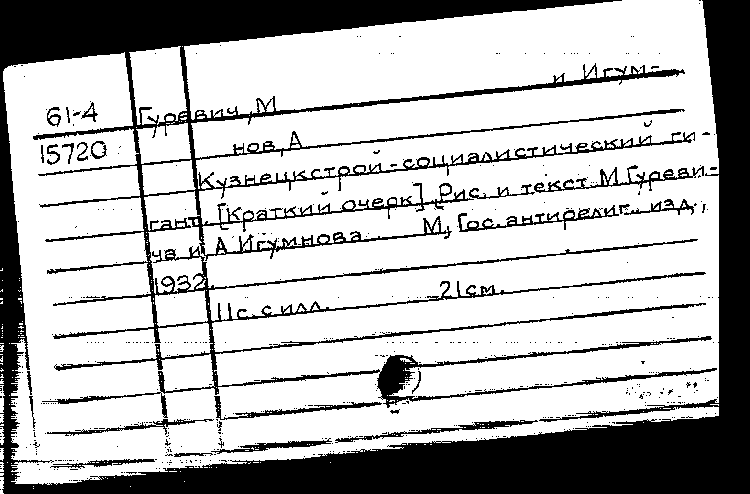 61-4 Гуревич, М и Игум-
15720 нов, А
Кузнецкстрой - социалистический ги-
гант. [Краткий очерк]. Рис. и текст М. Гуреви-
ча и А Игумнова М, Гос. антирелиг. изд.,
1932.
11с. с илл. 21см.